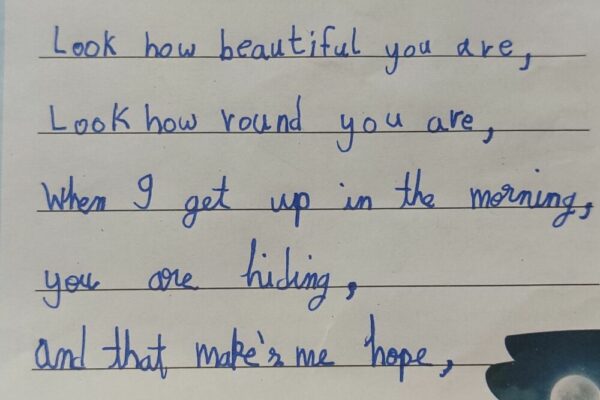 Look how beautiful you are,
Look how round you are,
When I get up in the morning,
you are hiding,
and that make's me hope,